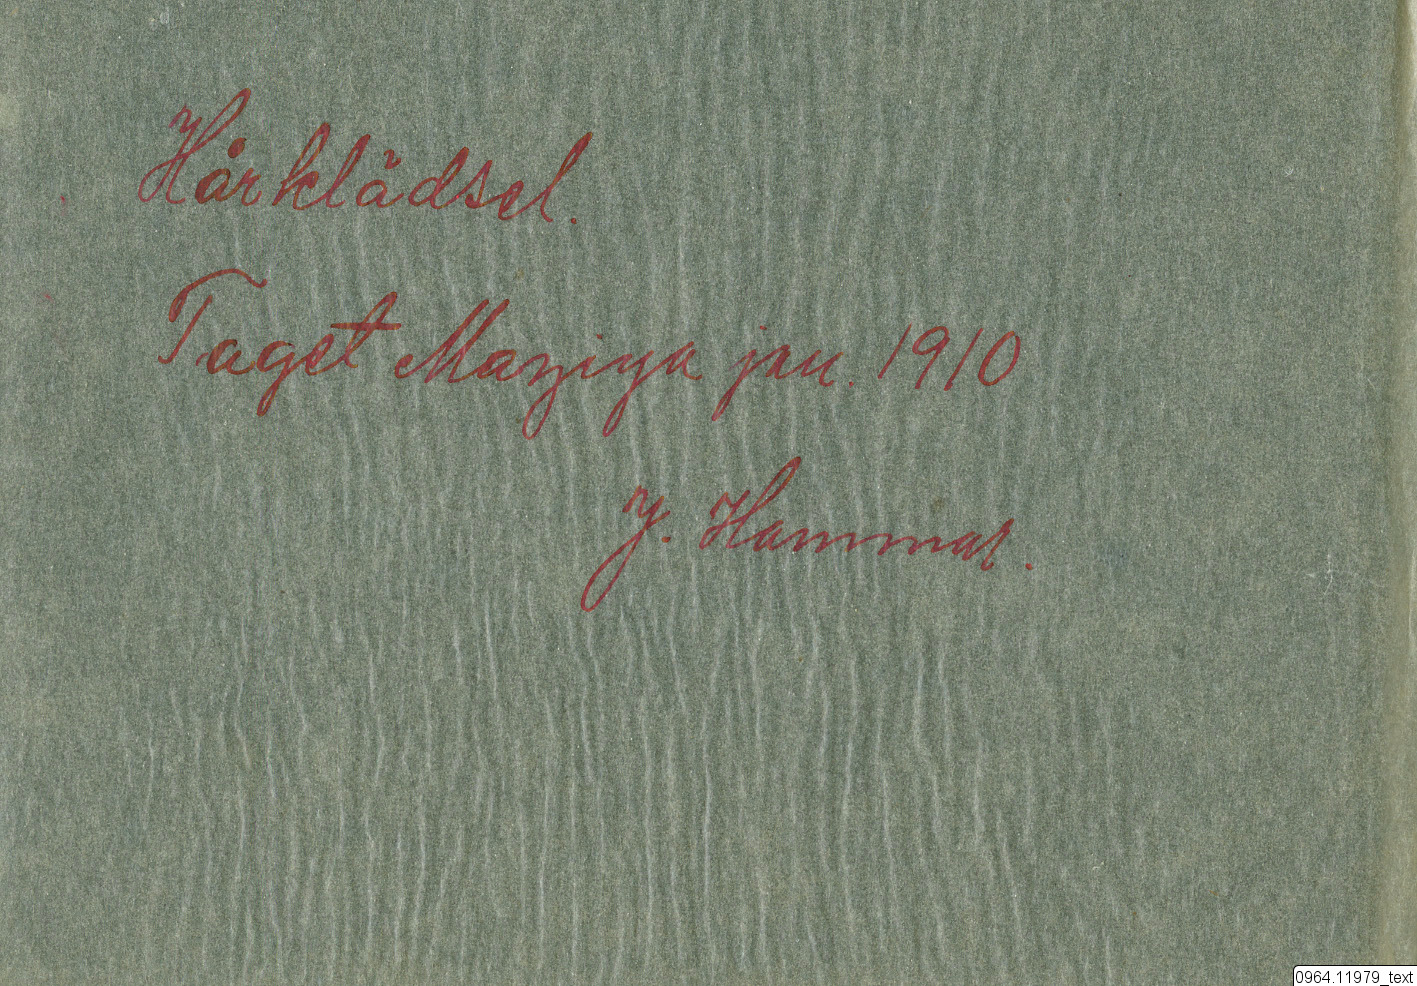 Hårklädsel.
Taget Maziya jan. 1910
J. Hammar.
0964.11979_text